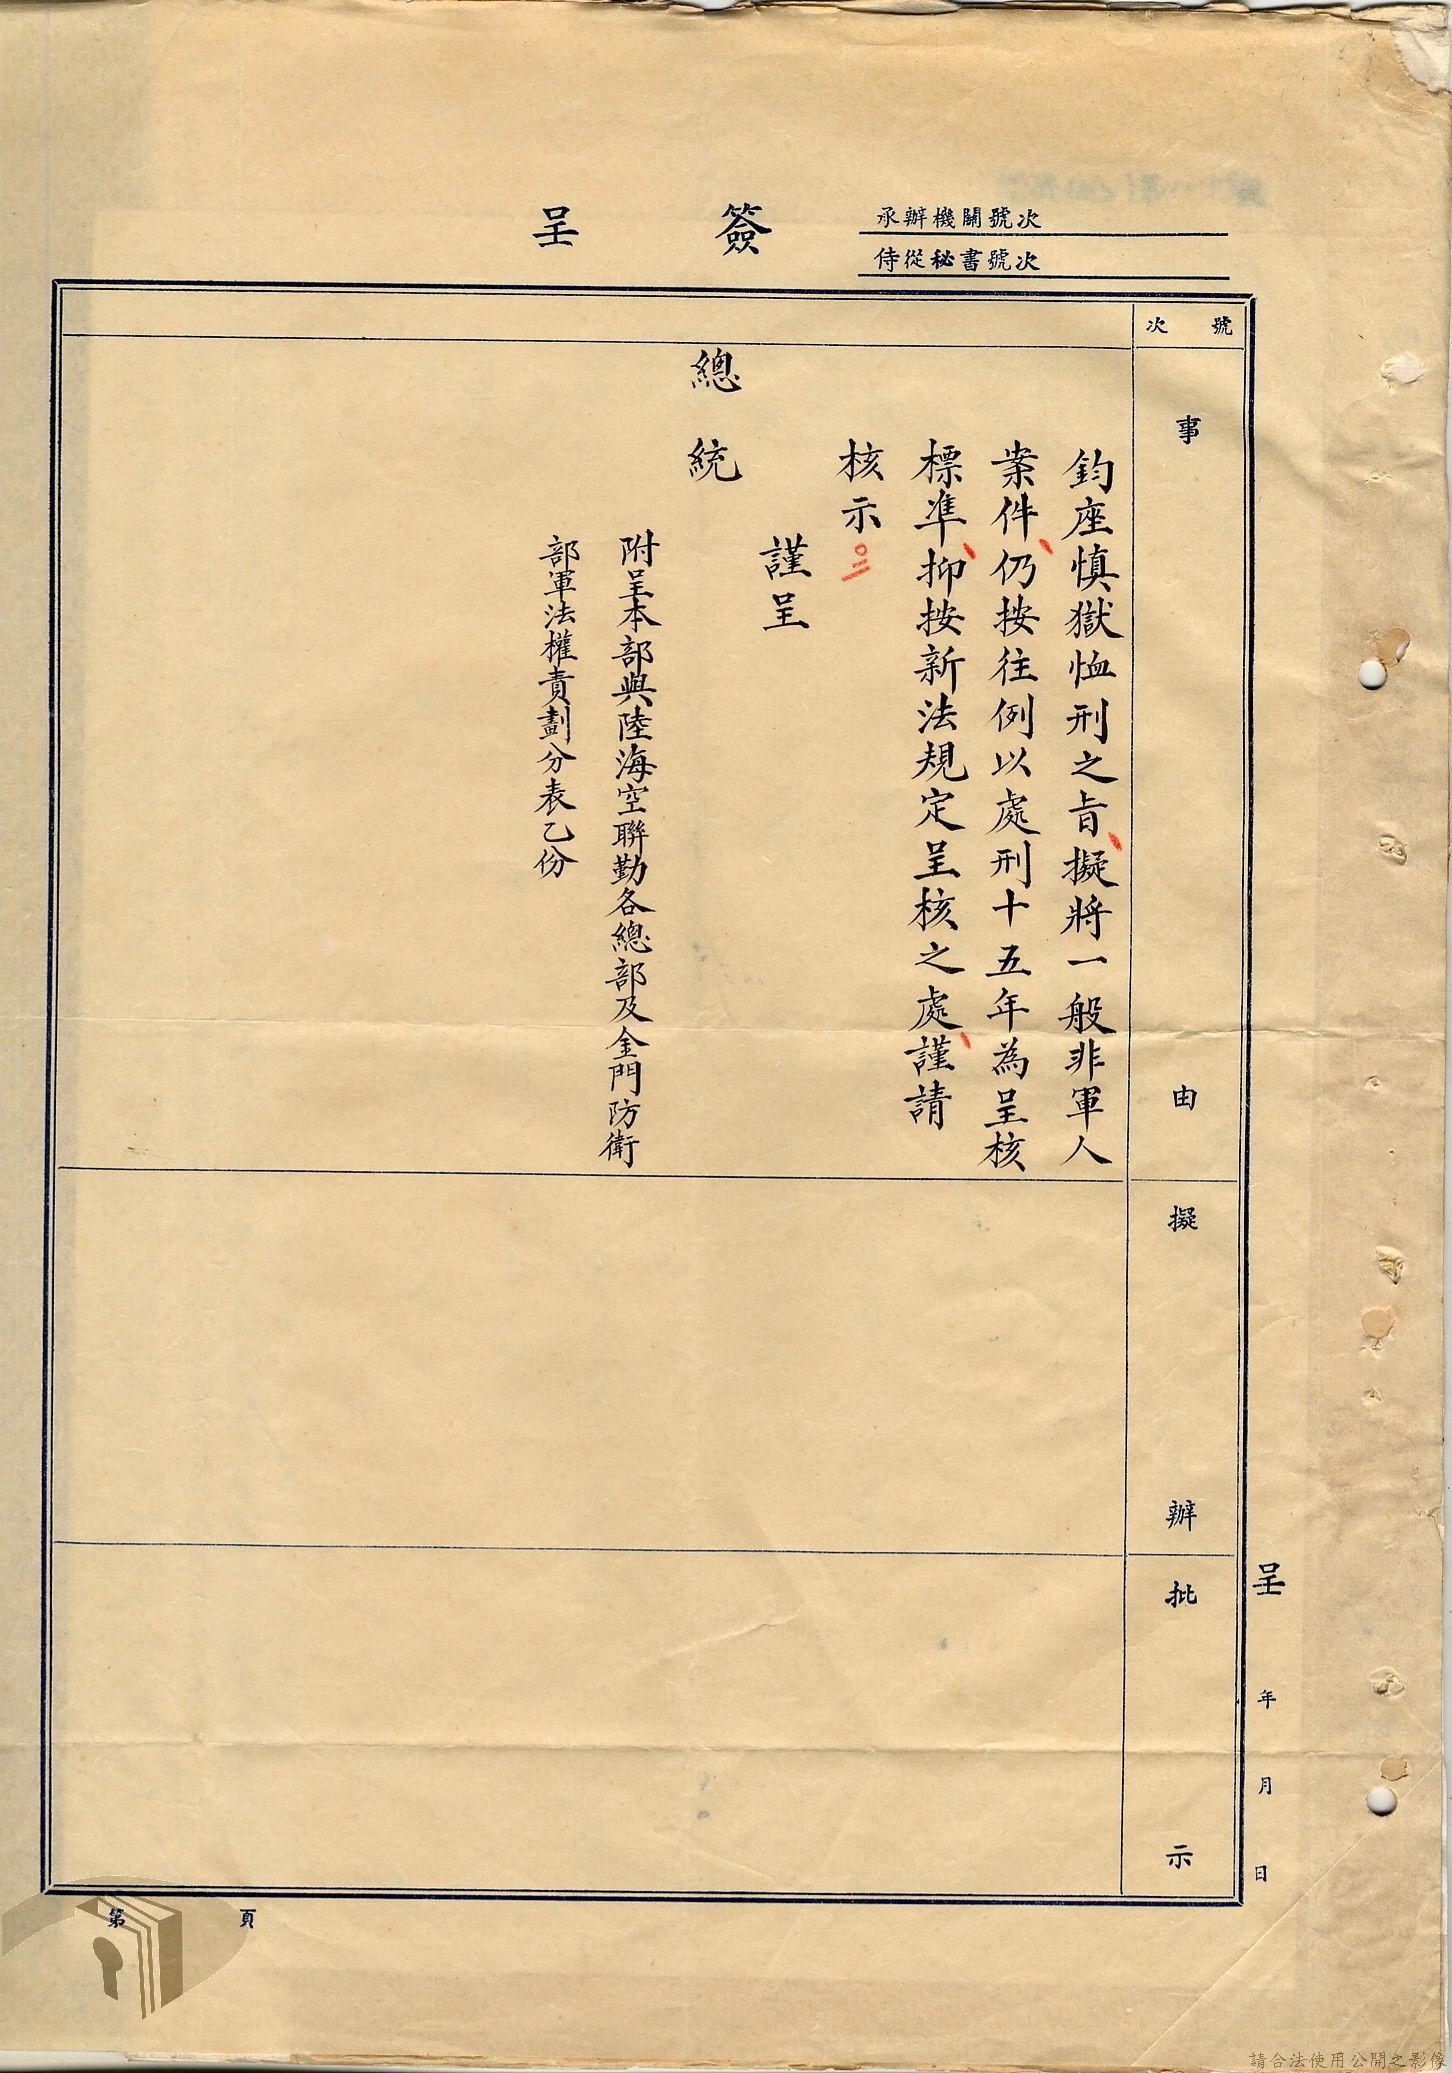 簽呈
承辦機關號次
侍從秘書號次
號次
事由
擬辦
批示
鈞座慎獄恤刑之旨擬將一般非軍人
案件仍按往例以處刑十五年為呈核
標準抑按新法規定呈核之處謹請
核示
謹呈
總統
附呈本部與陸海空聯勤各總部及金門防衛
部軍法權責劃分表乙份
呈 年 月 日
第 頁
請合法使用公開之影像